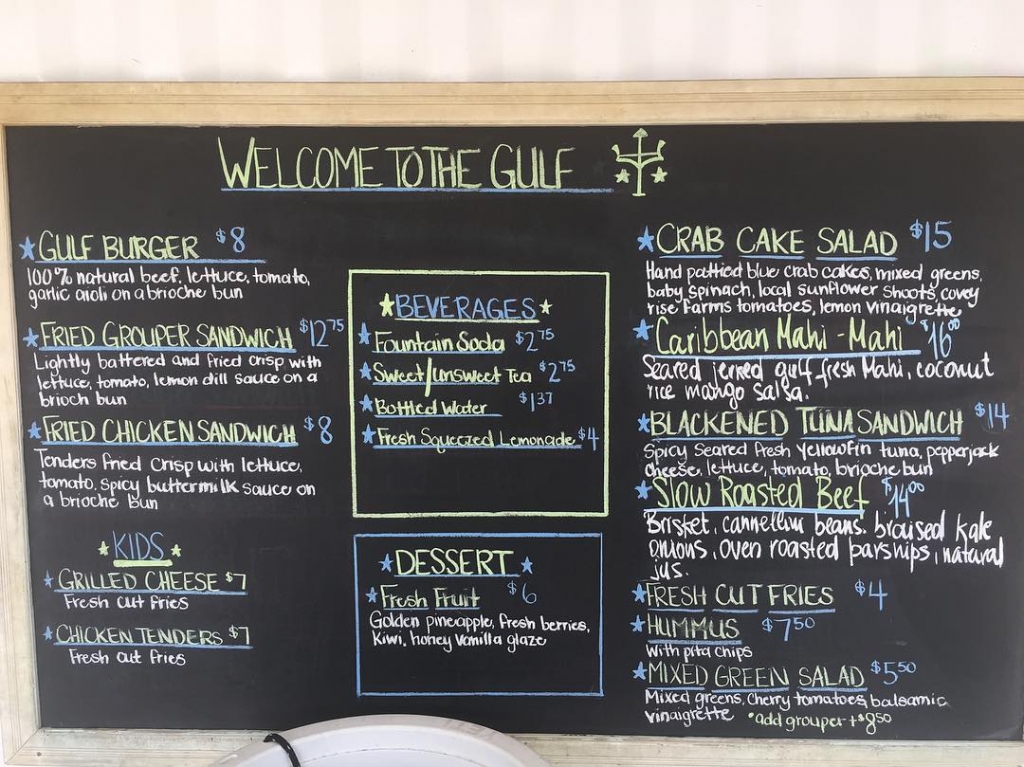 WELCOME TO THE GULF
GULF BURGER $8
100% natural beef, lettuce, tomato,
garlic aioli on a brioche bun
FRIED GROUPER SANDWICH $12.75
Lightly battered and fried crisp with
lettuce, tomato, lemon dill sauce on a
brioch bun
FRIED CHICKEN SANDWICH $8
Tenders fried crisp with lettuce,
tomato, spicy buttermilk sauce on
a brioche bun
KIDS
GRILLED CHEESE $7
Fresh cut fries
CHICKEN TENDERS $7
Fresh cut fries
BEVERAGES
Fountain Soda $2.75
Sweet/Unsweet Tea $2.75
Bottled Water $1.37
Fresh Squeezed Lemonade $4
DESSERT
Fresh Fruit $6
Golden pineapple, fresh berries,
Kiwi, honey vanilla glaze
CRAB CAKE SALAD $15
Hand pattied blue crab cakes, mixed greens,
baby spinach, local sunflower shoots, covey
rise farms tomatoes, lemon vinaigrette
Caribbean Mahi-Mahi $16.00
Seared jerked gulf fresh Mahi, coconut
rice mango salsa.
BLACKENED TUNA SANDWICH $14
Spicy seared fresh yellowfin tuna, pepperjack
cheese, lettuce, tomato, brioche bun
Slow Roasted Beef $14.00
Brisket, cannellini beans. braised kale
onions, oven roasted parsnips, natural
jus.
FRESH CUT FRIES $4
HUMMUS $7.50
with pita chips
MIXED GREEN SALAD $5.50
Mixed greens, cherry tomatoes, balsamic
vinaigrette *add grouper +$8.50